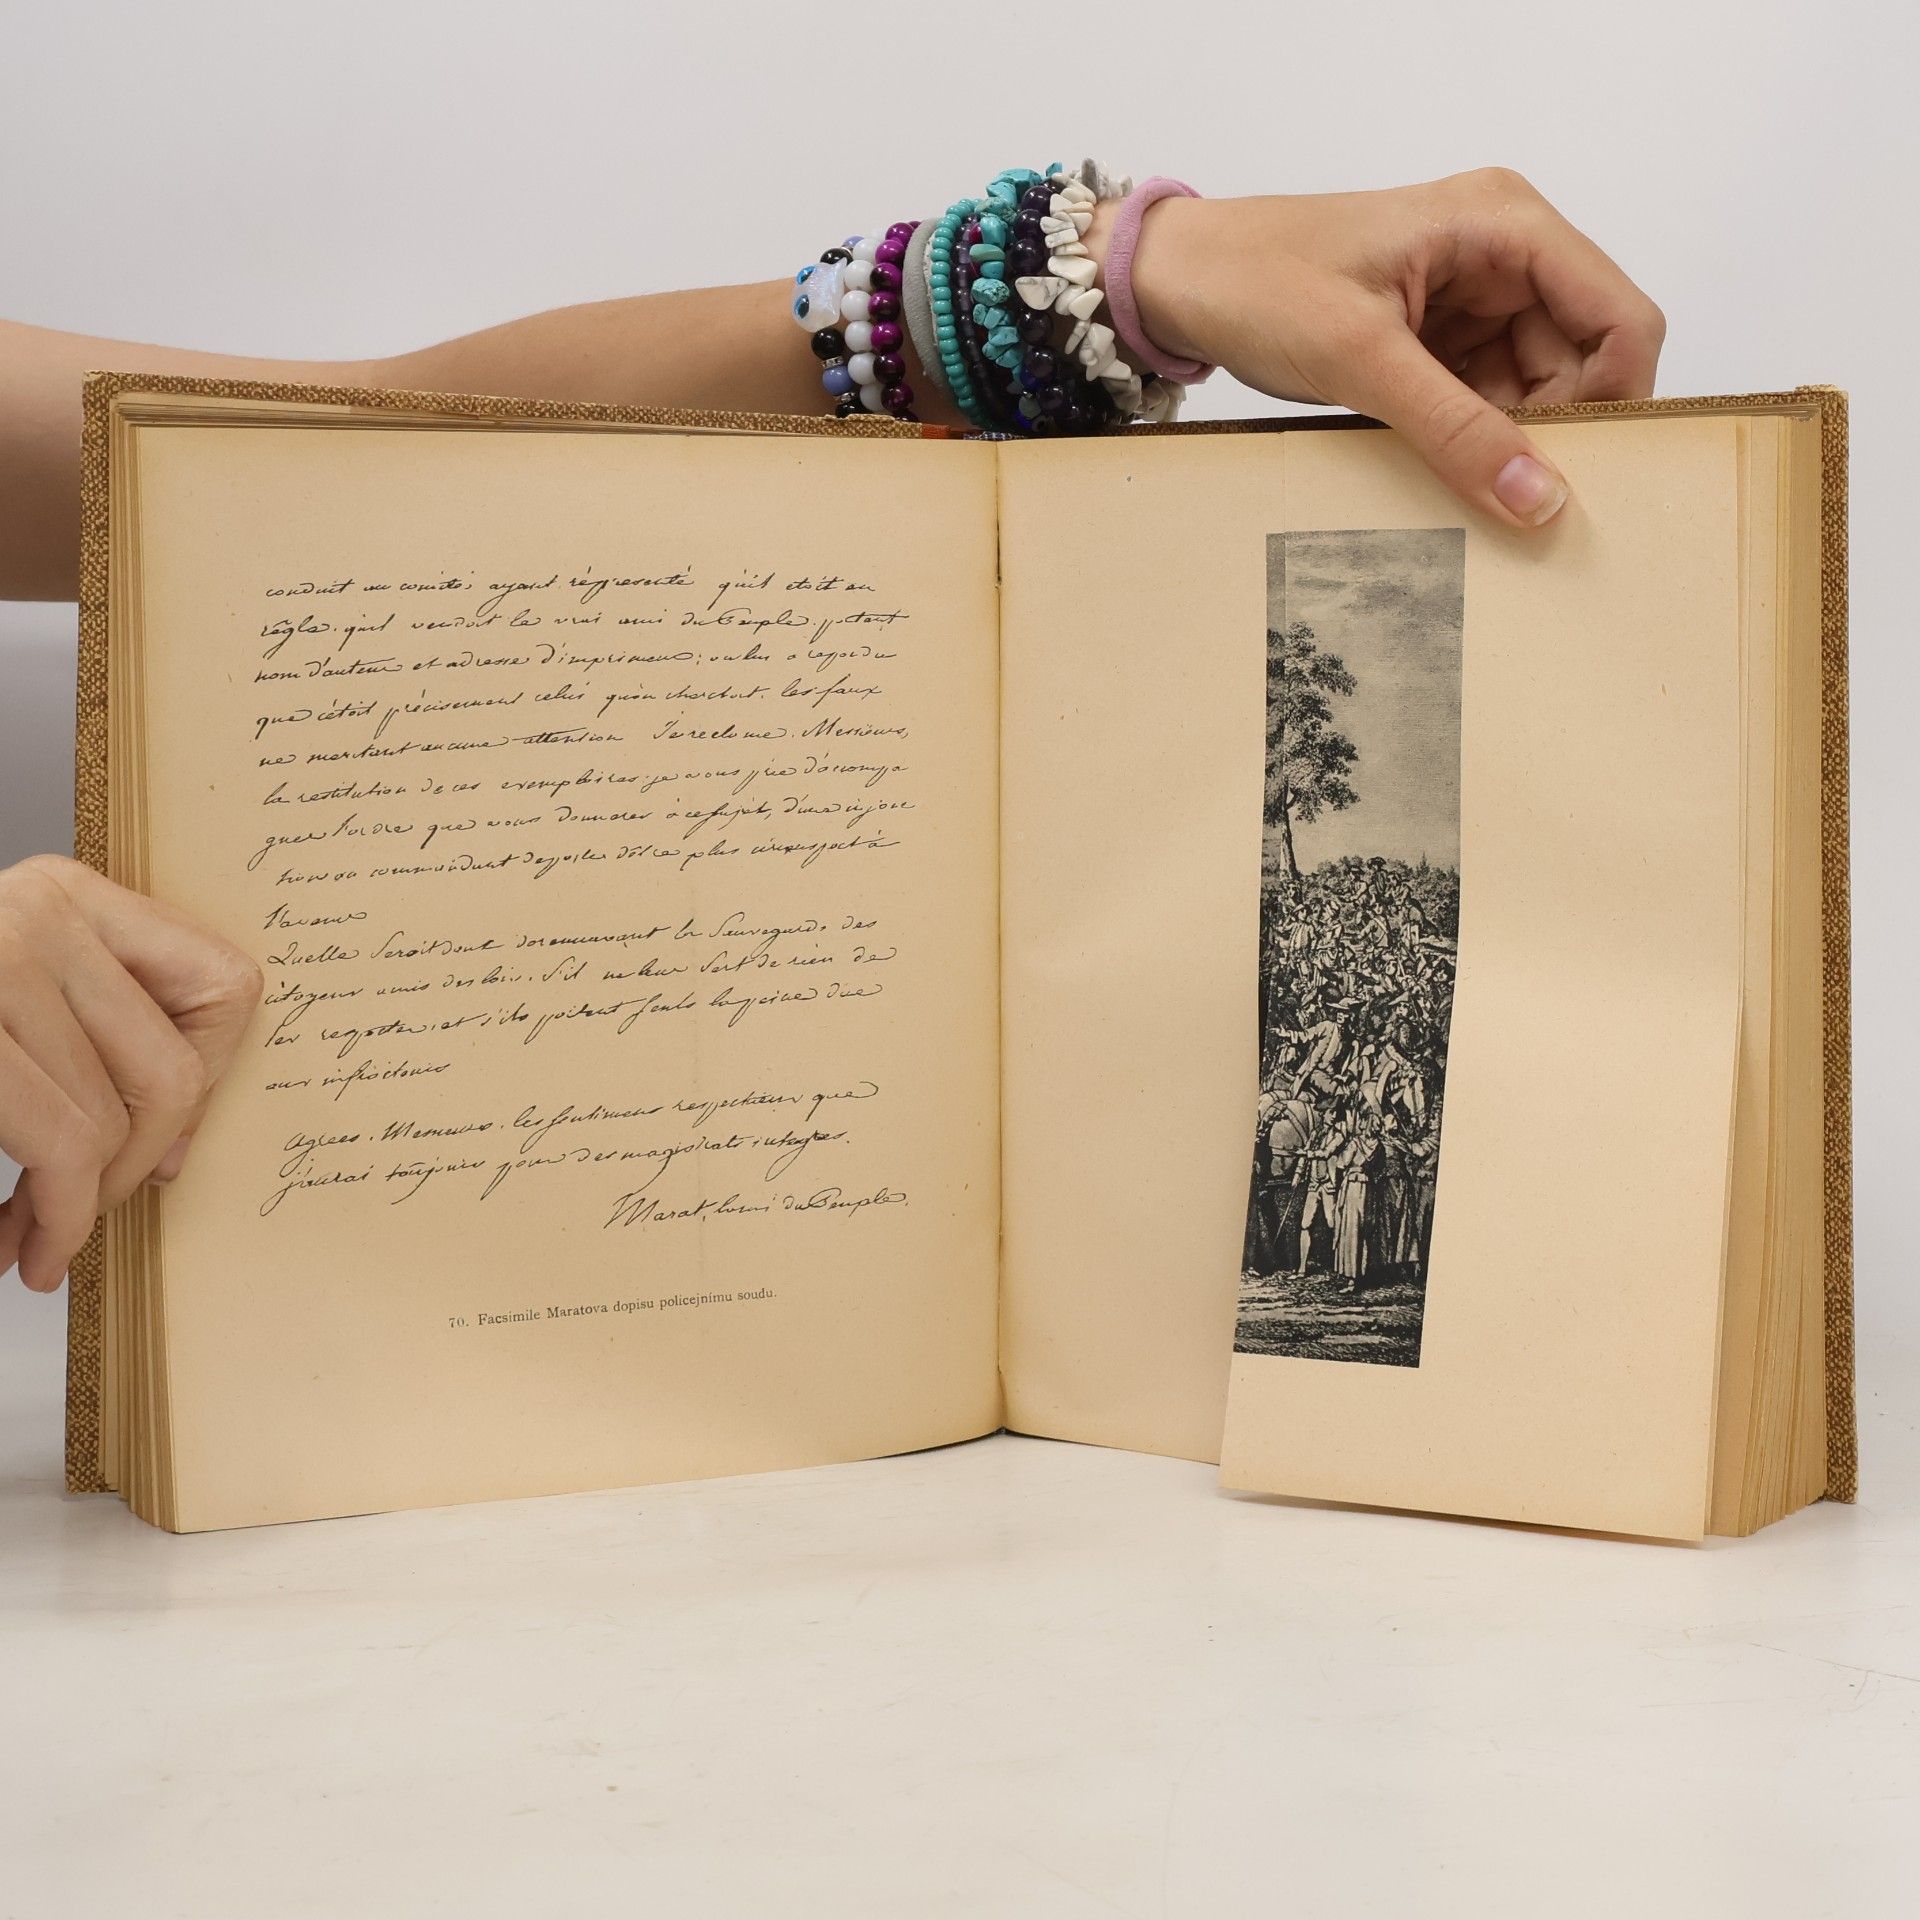 conduit au comité, ayant répresenté qu'il etoit en
règle. quil vendoit le vrai ami du Peuple. portant
nom d'auteur et adresse d'imprimeur; on lui a repondu
que c'étoit précisement celui qu'on cherchoit. les faux
ne meritant aucune attention Je reclame. Messieurs,
la restitution de ces exemplaires. je vous prie d'acompa
gner l'ordre que vous donnerez à ce sujet, d'une injonc
tion au commandant de poste d'être plus circonspect à
l'avenir
Quelle seroit dont dorennavant la Sauvegarde des
citoyens amis des loix. S'il ne leur sert de rien de
les respecter. et s'ils portent seuls la peine due
aux infracteurs
agreez. Messieurs. les sentimens respectieux que
j'aurai toujours pour des magistrats integres.
Marat, l'ami du Peuple.
70. Facsimile Maratova dopisu policejnímu soudu.